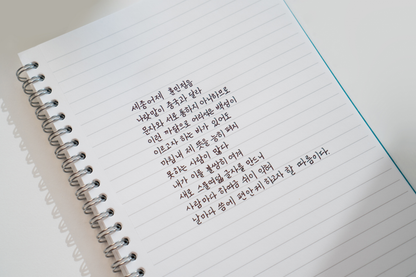 세종어제 훈민정음
나랏말이 중국과 달라
문자와 서로 통하지 아니하므로
이런 까닭으로 어리석은 백성이
이르고자 하는 바가 있어도
마침내 제 뜻을 능히 펴지
못하는 사람이 많다
내가 이를 불쌍히 여겨
새로 스물여덟 글자를 만드니
사람마다 하여금 쉬이 익혀
날마다 씀에 편안케 하고자 할 따름이다